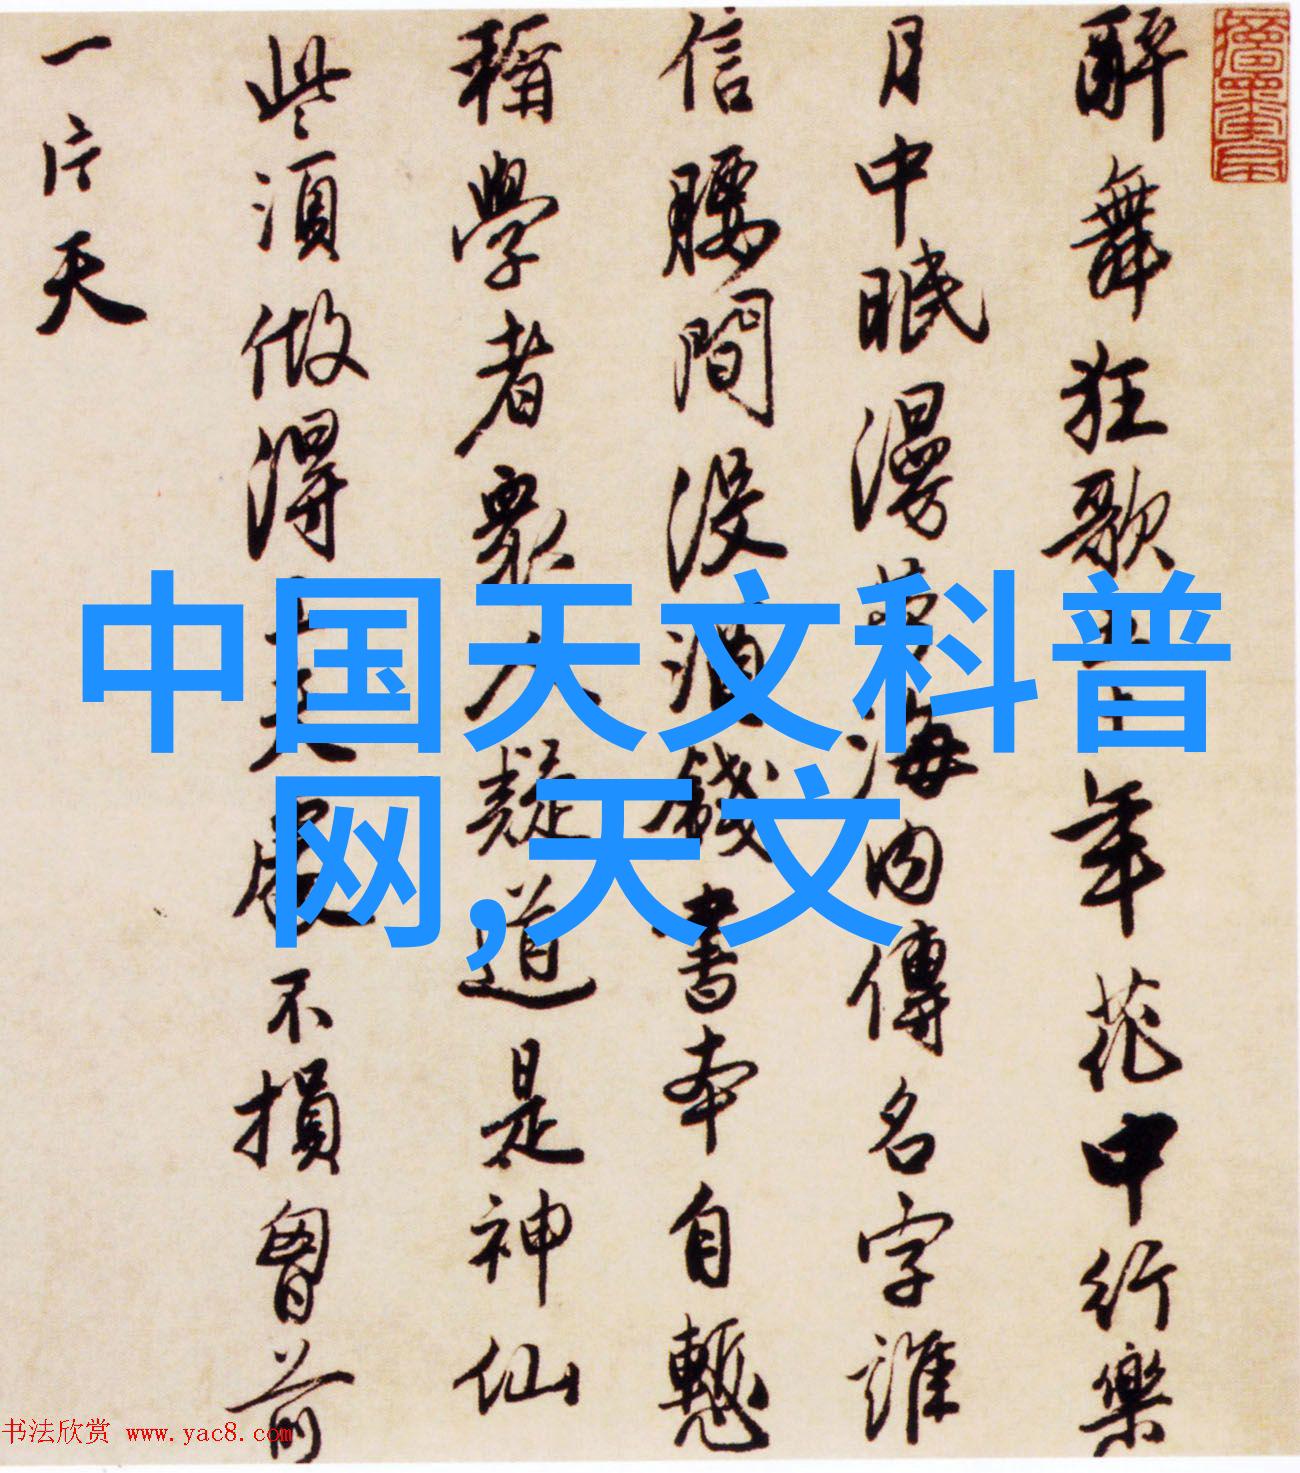 醉舞狂歌五十年花中行樂
月中眠漫勞海内傳名字誰
信腰間没酒錢書本自慙
稱學者衆人疑道是神仙
些須做得工夫處不損胷前
一片天
中国天文科普
网,天文
书法欣赏 www.yac8.com